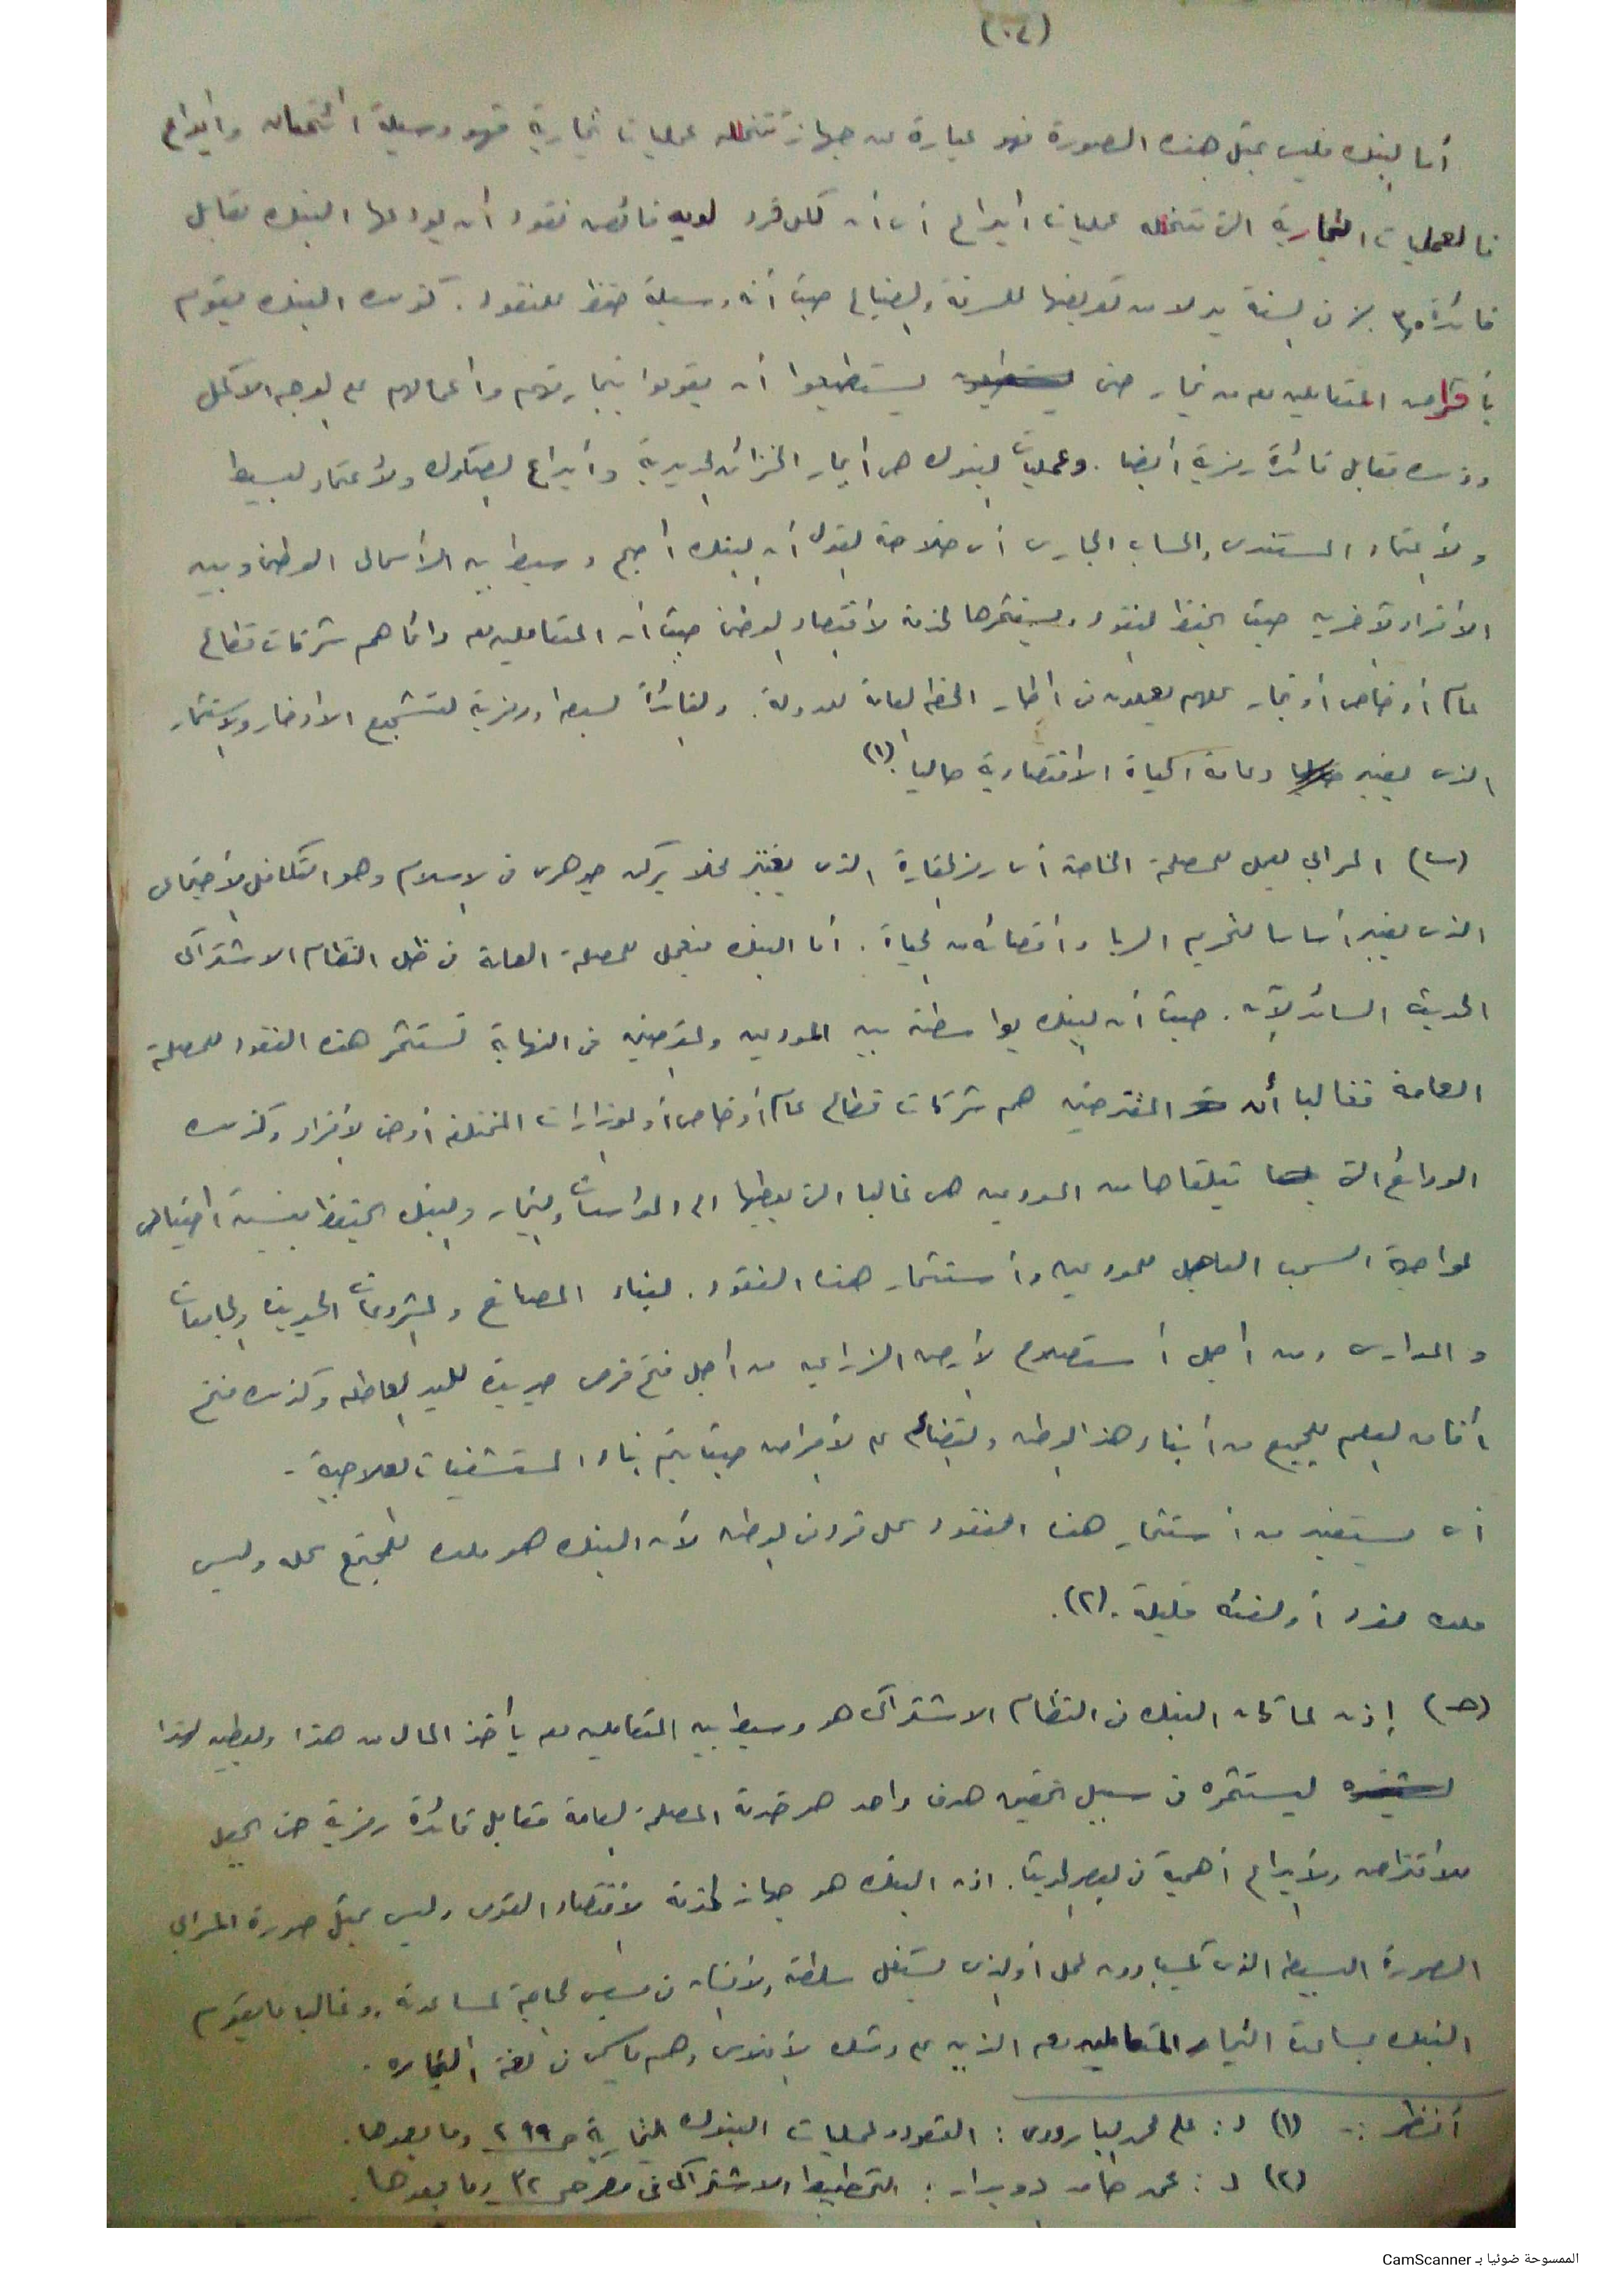 (٤٠)
أما البنك فليس يمثل هذه الصورة فهو عبارة عن جهاز تتخلله عمليات تجارية فهو وسيلة ائتمان وايداع
فالعمليات التجارية التى تتخلله عمليات ايداع أى أن كل فرد لديه فائض نقود أن يودعها البنك مقابل
فائدة ٣٫٥٪ فى السنة بدلا من تعريضها للسرقة والضياع حيث أنه وسيلة حفظ للنقود . كذلك البنك يقوم
بأقراض المتعاملين معه من تجار حتى يستطيعوا أن يقوموا بتجارتهم وأعمالهم على الوجه الأكمل
وذلك مقابل فائدة رمزية أيضا . وعمليات البنوك هى أيجار الخزائن الحديدية وأيداع الصكوك والأعتماد البسيط
والأعتماد المستندى والحساب الجارى أى خلاصة القول أن البنك أصبح وسيط بين الرأسمال الوطنى وبين
الأفراد الآخرين حيث الحفظ النقود ويستثمرها لخدمة الأقتصاد الوطنى حيث أن المتعاملين معه دائما هم شركات قطاع
عام أو خاص أو تجار كلهم يعملون فى أطار الخطة العامة للدولة . والفائدة بسيطة ورمزية لتشجيع الادخار والاستثمار
الذى يعتبر دعامة الحياة الاقتصادية حاليا . (١)
(ب) المرابى يعمل للمصلحة الخاصة أى رمز الذى يعتبر مخلا بركن جوهرى فى الاسلام وهو التكافل الأجتماعى
الذى يعتبر أساسا لتحريم الربا وأقصائه من الحياة . أما البنك فيعمل للمصلحة العامة فى ظل النظام الاشتراكى
الحديث السائد الآن . حيث أن البنك بواسطته بين المودعين والمقترضين فى النهاية تستثمر هذه النقود للمصلحة
العامة فغالبا أن المقترضين هم شركات قطاع عام أو خاص أو الوزارات المختلفة أو حتى الأفراد وكذلك
الودائع التى يتلقاها من المودعين هى غالبا التى يعطيها الى المؤسسات والتجار والبنك يحتفظ بنسبة احتياطى
لمواجهة السحب العاجل للمودعين وأستثمار هذه النقود . لبناء المصانع والمشروعات الحديثة والجامعات
والمدارس ومن أجل أستصلاح الأرض الزراعية من أجل فتح فرص جديدة لليد العاطلة وكذلك فتح
أفاق العلم للجميع من أبناء هذا الوطن والقضاء على الأمراض حيث يتم بناء المستشفيات العلاجية .
أى يستفيد من أستثمار هذه النقود كل فرد فى الوطن لأن البنك هو ملك للمجتمع كله وليس
ملك لفرد أو لفئة قليلة . (٢) .
(حـ) إذن لما كان البنك فى النظام الاشتراكى هو وسيط بين المتعاملين معه يأخذ المال من هذا ويعطيه لهذا
ليستثمره فى سبيل تحقيق هدف واحد هو خدمة المصلحة العامة مقابل فائدة رمزية حتى يجعل
للأقتراض والأيداع أهمية فى العصر الحديث . اذن البنك هو جهاز لخدمة الأقتصاد القومى وليس يمثل صورة المرابى
الصورة البسيطة الذى يكسب بدون عمل أو الذى يستغل سلطته والأنسان فى مسيس الحاجة لمساعدته . وغالبا مايقوم
البنك بمساعدة التجار المتعاملين معه الذين على وشك الأفلاس وهم ما يسمى فى لغة التجارة .
أنظر :- (١) د : على محمد البارودى : العقود وعمليات البنوك التجارية ص ٢٩٩ وما بعدها .
(٢) د : محمد حامد دويدار : التخطيط الاشتراكى فى مصر ص ٣٢ وما بعدها .
الممسوحة ضوئيا بـ CamScanner